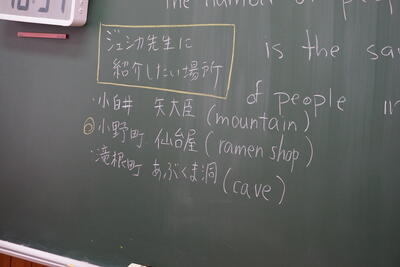 The number of peop
is the sa
of people
ジェシカ先生に
紹介したい場所
・小白井 矢大臣 (mountain)
◎小野町 仙台屋 (ramen shop)
・滝根町 あぶくま洞 (cave)